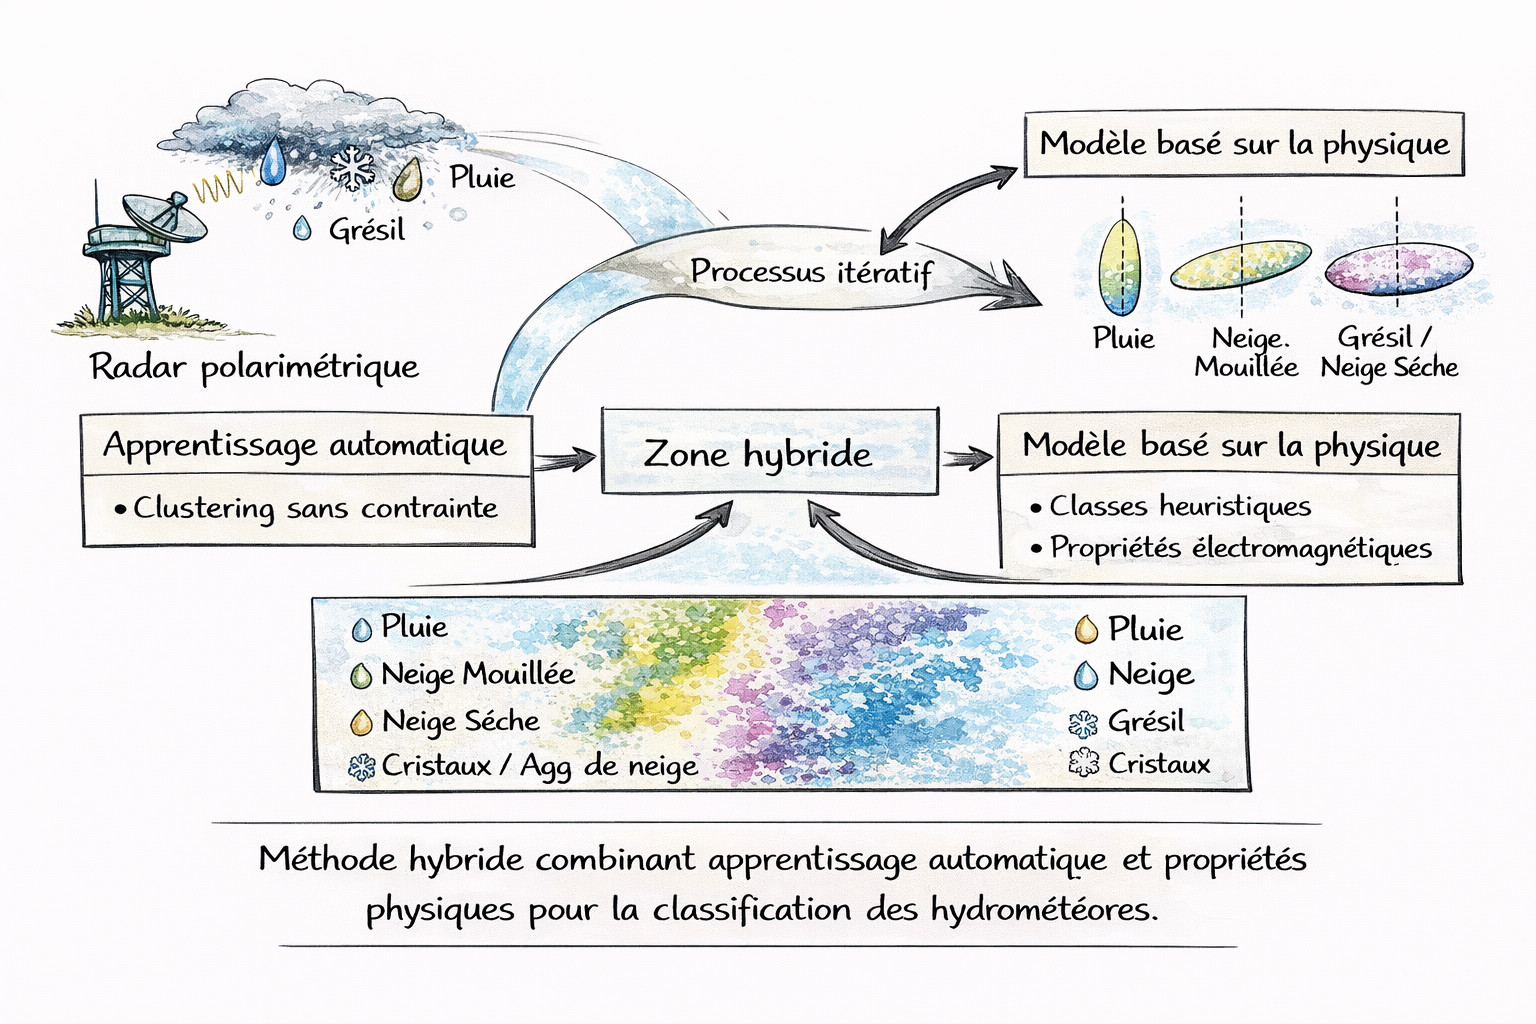 Pluie
Grésil
Radar polarimétrique
Processus itératif
Modèle basé sur la physique
Pluie
Neige.
Mouillée
Grésil /
Neige Séche
Apprentissage automatique
• Clustering sans contrainte
Zone hybride
Modèle basé sur la physique
• Classes heuristiques
• Propriétés électromagnétiques
Pluie
Neige Mouillée
Neige Séche
Cristaux / Agg de neige
Pluie
Neige
Grésil
Cristaux
Méthode hybride combinant apprentissage automatique et propriétés
physiques pour la classification des hydrométéores.